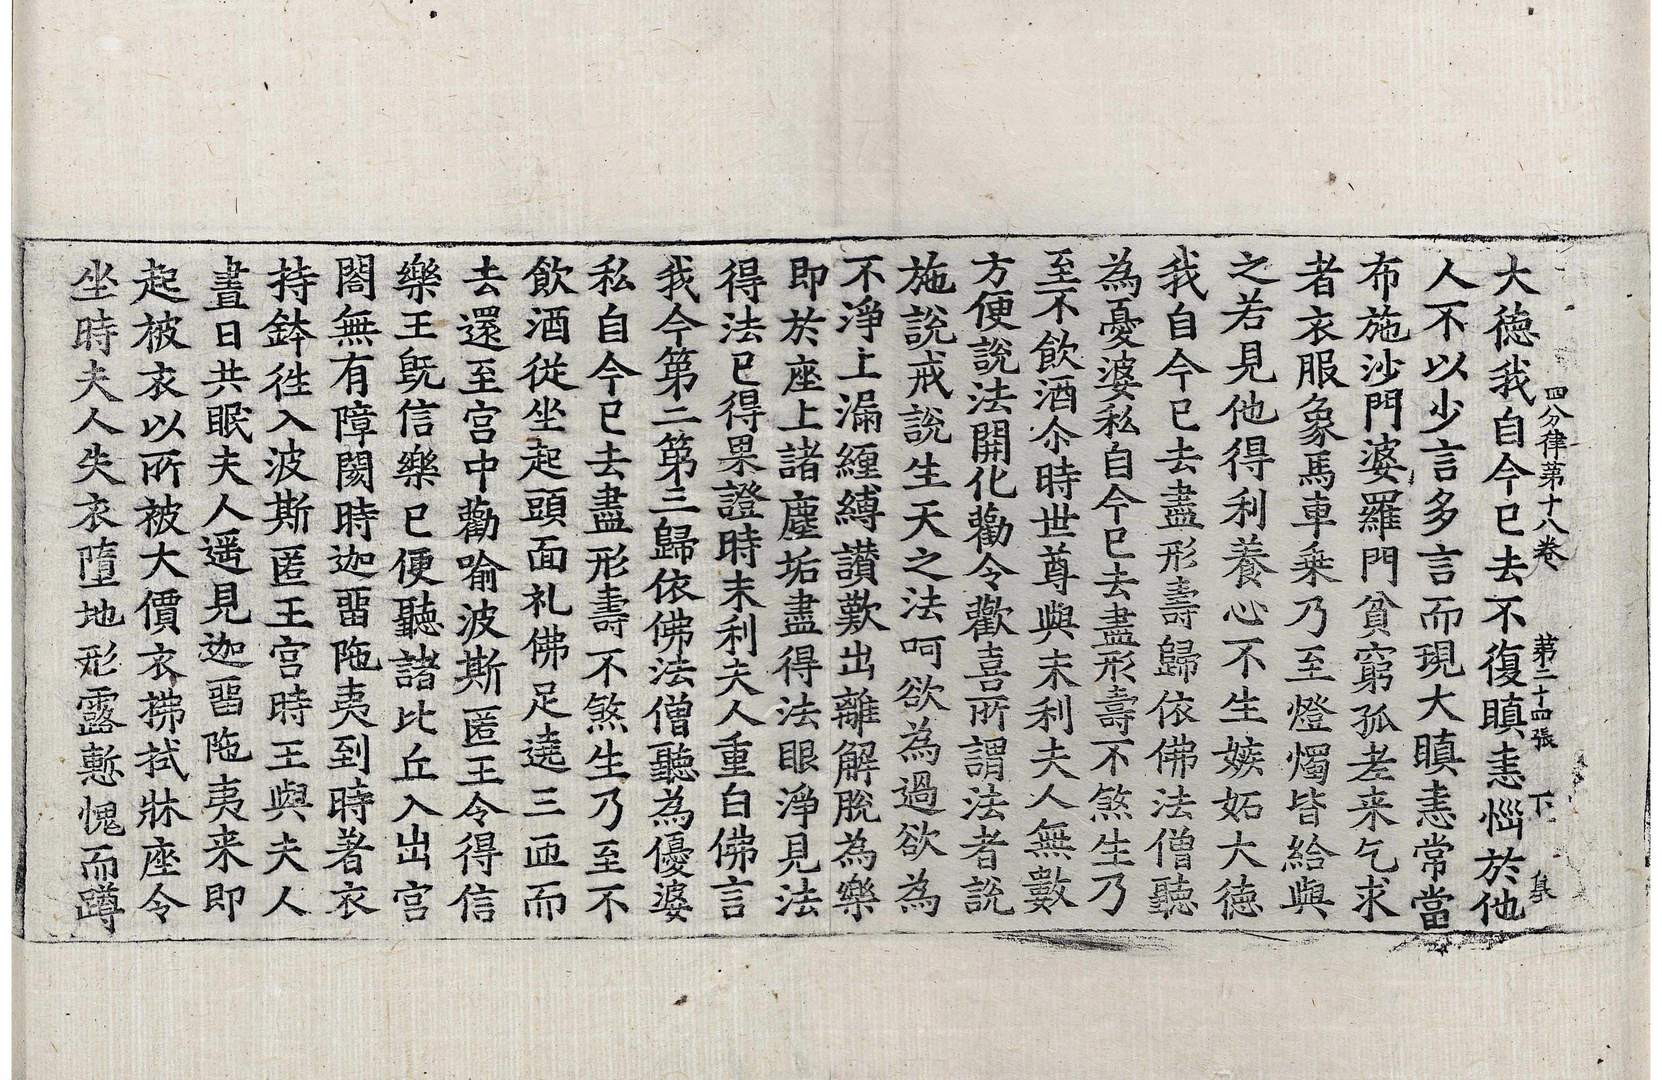 四分律第十八卷 第二十四張 下 集
大德我自今已去不復瞋恚惱於他
人不以少言多言而現大瞋恚常當
布施沙門婆羅門貧窮孤老来乞求
者衣服象馬車乗乃至燈燭皆給與
之若見他得利養心不生嫉妬大德
我自今已去盡形壽歸依佛法僧聽
為憂婆私自今已去盡形壽不煞生乃
至不飲酒尒時世尊與末利夫人無數
方便說法開化勸令歡喜所謂法者說
施說戒說生天之法呵欲為過欲為
不淨上漏纏縛讃歎出離解脫為樂
即於座上諸塵垢盡得法眼淨見法
得法已得果證時末利夫人重白佛言
我今第二第三歸依佛法僧聽為優婆
私自今已去盡形壽不煞生乃至不
飲酒從坐起頭面礼佛足遶三匝而
去還至宮中勸喻波斯匿王令得信
樂王旣信樂已便聽諸比丘入出宮
閤無有障閡時迦畱陁夷到時著衣
持鉢徃入波斯匿王宮時王與夫人
晝日共眠夫人遥見迦畱陁夷来即
起被衣以所被大價衣拂拭牀座令
坐時夫人失衣墮地形露慙愧而蹲